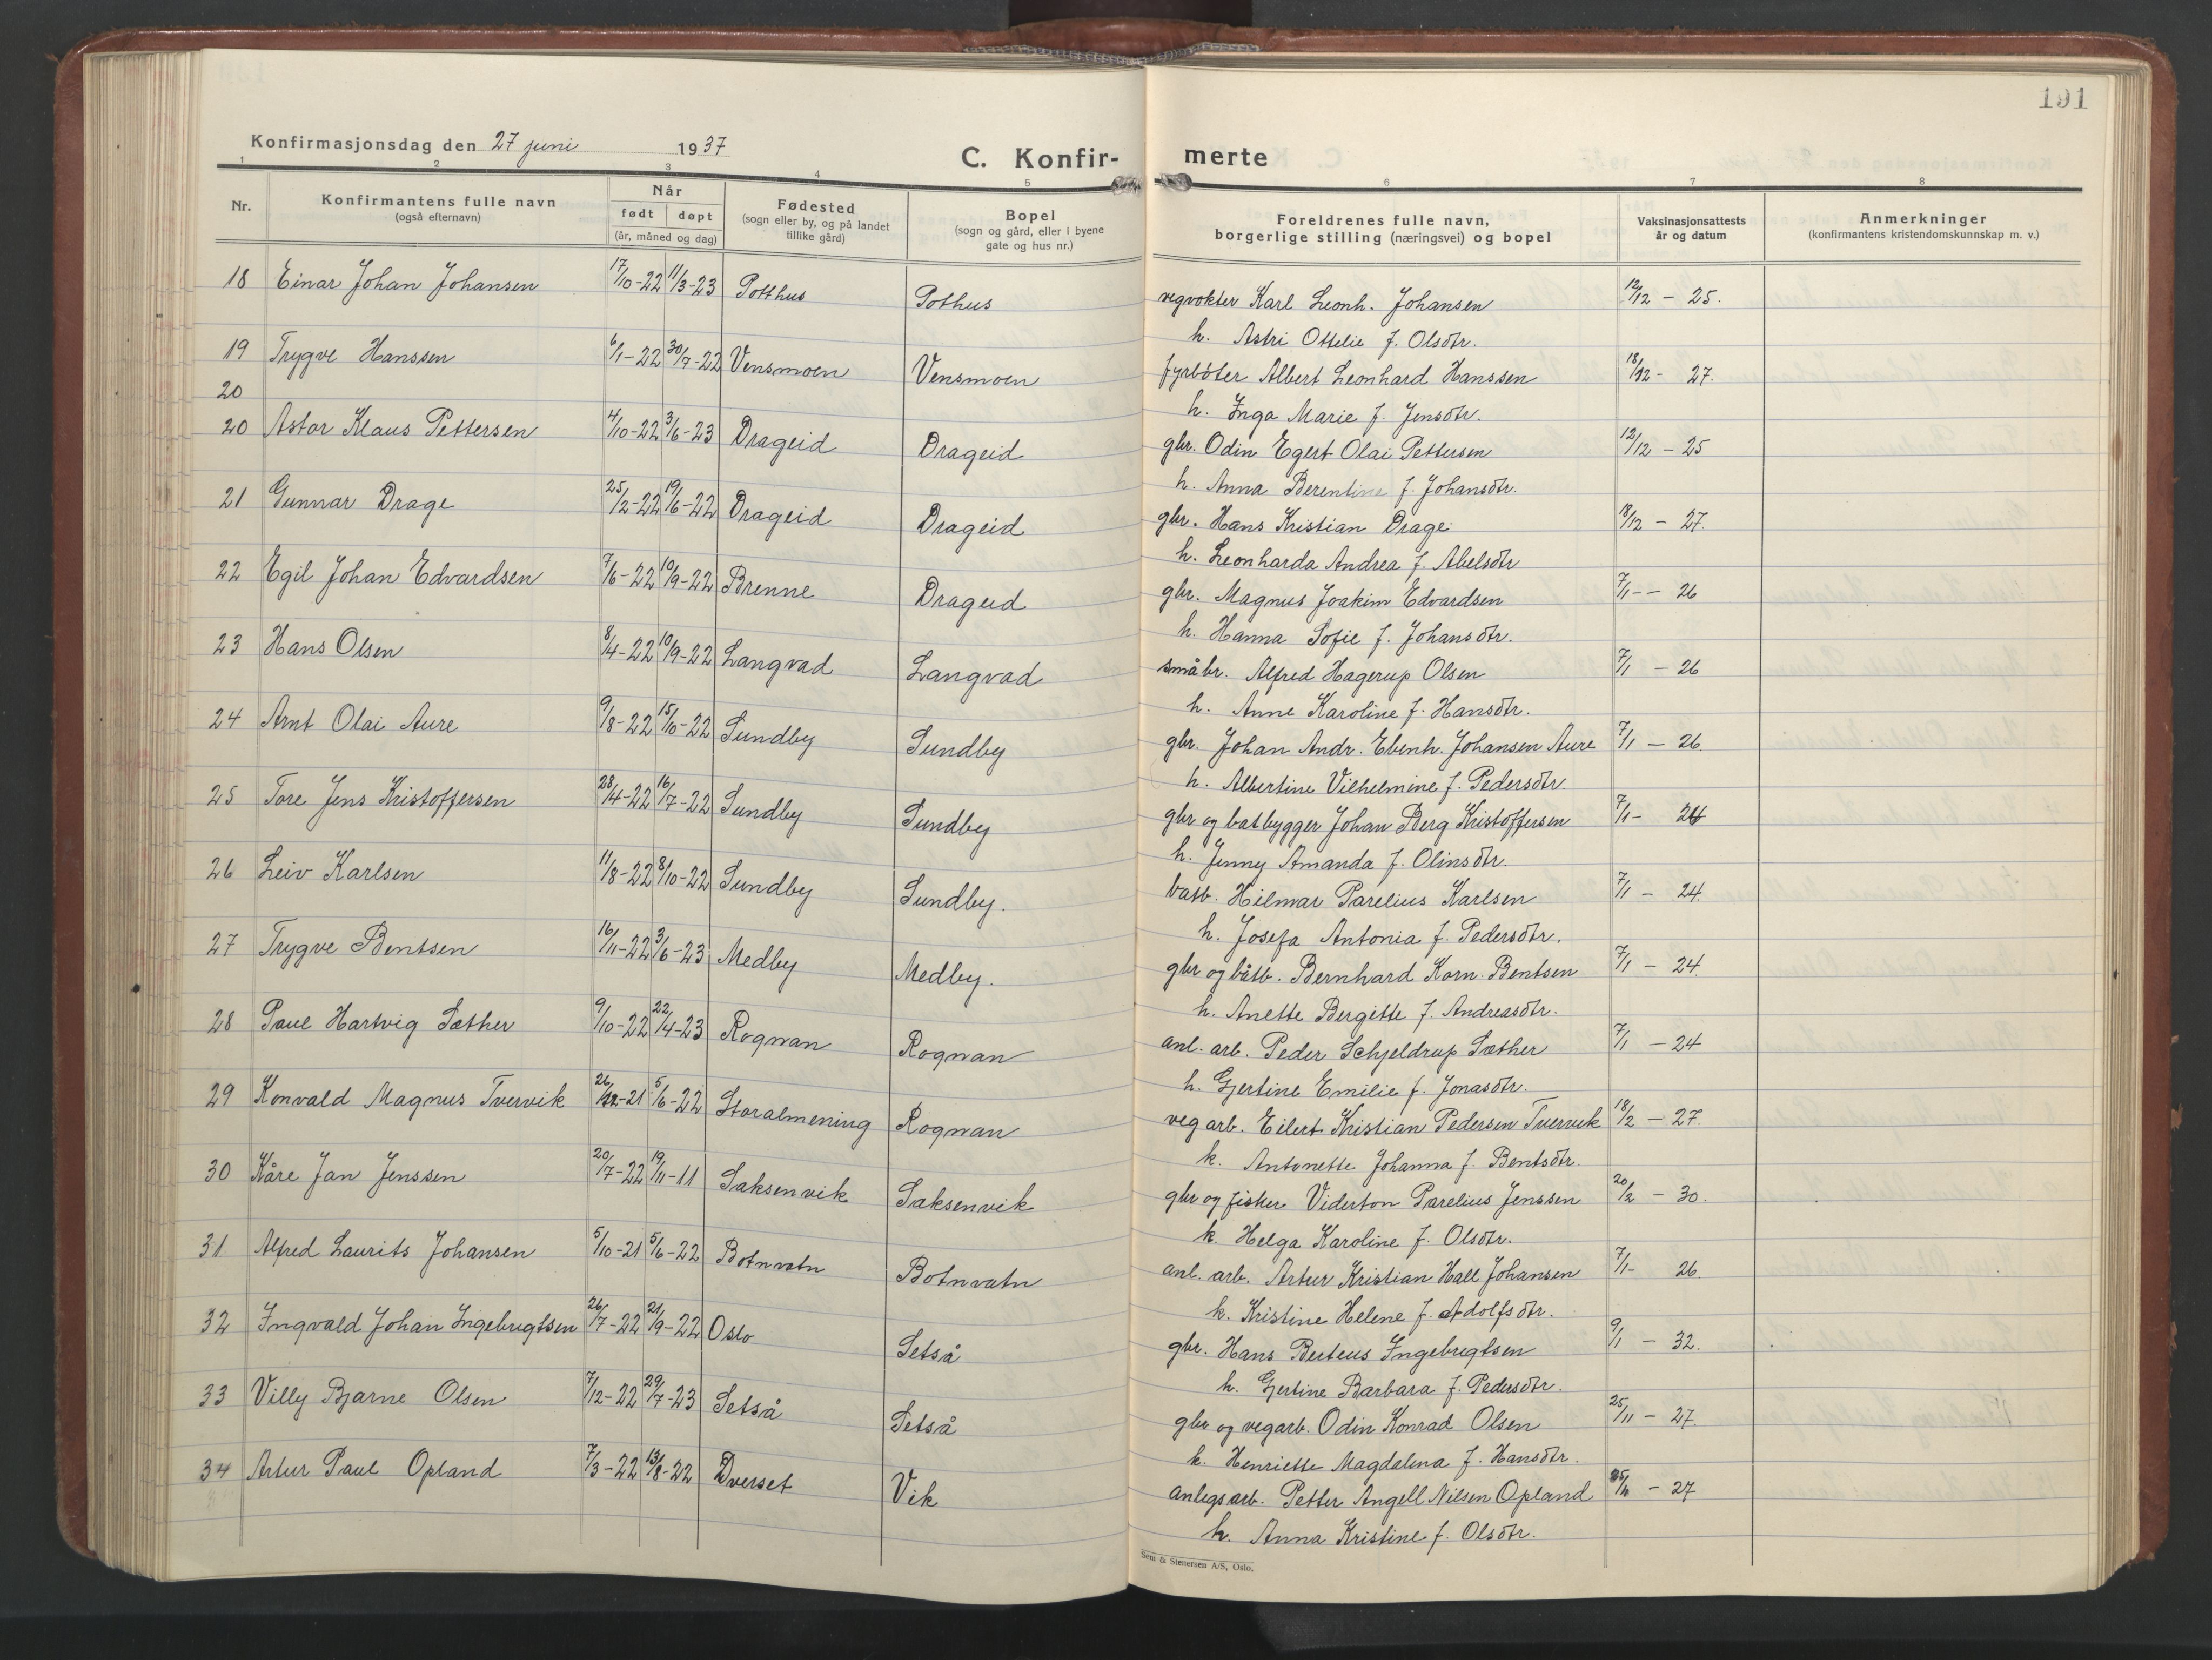 191
Konfirmasjonsdag den 27 juni 1937
C. Konfir-merte
1 2 3 4 5 6 7 8
Nr.
Konfirmantens fulle navn
(også efternavn)
Når
født døpt
(år, måned og dag)
Fødested
(sogn eller by, og på landet
tillike gård)
Bopel
(sogn og gård, eller i byene
gate og hus nr.)
Foreldrenes fulle navn,
borgerlige stilling (næringsvei) og bopel
Vaksinasjonsattests
år og datum
Anmerkninger
(konfirmantens kristendomskunnskap m. v.)
18 Einar Johan Johansen 17/10-22 11/3-23 Potthus Pothus vegvokter Karl Leonh. Johansen 12/12 - 25.
h. Astri Ottelie f. Olsdtr.
19 Trygve Hanssen 6/1-22 30/7-22 Vensmoen Vensmoen fyrbøter Albert Leonhard Hanssen 18/12 - 27.
20
h. Inga Marie f. Jensdtr.
20 Astor Klaus Pettersen 4/10-22 3/6-23 Drageid Drageid gbr. Odin Egert Olai Pettersen 12/12 - 25
h. Anna Berentine f. Johansdtr.
21 Gunnar Drage 25/2-22 19/6-22 Drageid Drageid gbr. Hans Kristian Drage 18/12 - 27.
h. Leonharda Andrea f. Abelsdtr
22 Egil Johan Edvardsen 7/6-22 10/9-22 Brenne Drageid gbr. Magnus Joakim Edvardsen 7/1 - - 26
h. Hanna Sofie f. Johansdtr.
23 Hans Olsen 8/4-22 10/9-22 Langvad Langvad småbr. Alfred Hagerup Olsen 7/1 - 26
h. Anne Karoline f. Hansdtr.
24 Arnt Olai Aure 9/8-22 15/10-22 Sundby Sundby gbr. Johan Andr. Ebenh. Johansen Aure 7/1 - 26
h. Albertine Vilhelmine f. Pedersdtr.
25 Tore Jens Kristoffersen 28/4-22 16/7-22 Sundby Sundby gbr og batbygger Johan Berg Kristoffersen 7/1 - 24
h. Jenny Amanda f. Olinsdtr.
26 Leiv Karlsen 11/8-22 8/10-22 Sundby Sundby. batb. Hilmar Parelius Karlsen 7/1 - 24.
h. Josefa Antonia f. Pedersdtr.
27 Trygve Bentsen 16/11-22 3/6-23 Medby Medby. gbr og båtb. Bernhard Korn. Bentsen 7/1 - 24.
h. Anette Bergitte f. Andreasdtr.
28 Paul Hartvig Sæther 9/10-22 22/4-23 Rognan Rognan anl. arb. Peder Schjeldrup Sæther 7/1 - 24
h. Gjertine Emilie f. Jonasdtr.
29 Konvald Magnus Tvervik 26/12-21 5/6-22 Storalmening Rognan vegarb. Eilert Kristian Pedersen Tvervik 18/2 - 27.
k. Antonette Johanna f. Bentsdtr.
30 Kåre Jan Jenssen 20/7-22 19/11-11 Saksenvik Saksenvik gbr og fisker Viderton Parelius Jenssen 20/2 - 30.
k. Helga Karoline f. Olsdtr.
31 Alfred Laurits Johansen 5/10-21 5/6-22 Botnvatn Botnvatn anl. arb. Artur Kristian Hall Johansen 7/1- 26.
k. Kristine Helene f. Adolfsdtr.
32 Ingvald Johan Ingebrigtsen 26/7-22 21/9-22 Oslo Setså gbr. Hans Berteus Ingebrigtsen 9/1 - 32.
h. Gjertine Barbara f. Pedersdtr.
33 Villy Bjarne Olsen 7/12-22 29/7-23 Setså Setså gbr og vegarb. Odin Konrad Olsen 25/11 - 27.
k. Henriette Magdalena f. Hansdtr.
34 Artur Paul Opland 7/3-22 13/8-22 Dverset Vik anlegsarb. Petter Angell Nilsen Opland 25/11 - 27
h. Anna Kristine f. Olsdtr.
Sem & Stenersen A/S, Oslo.